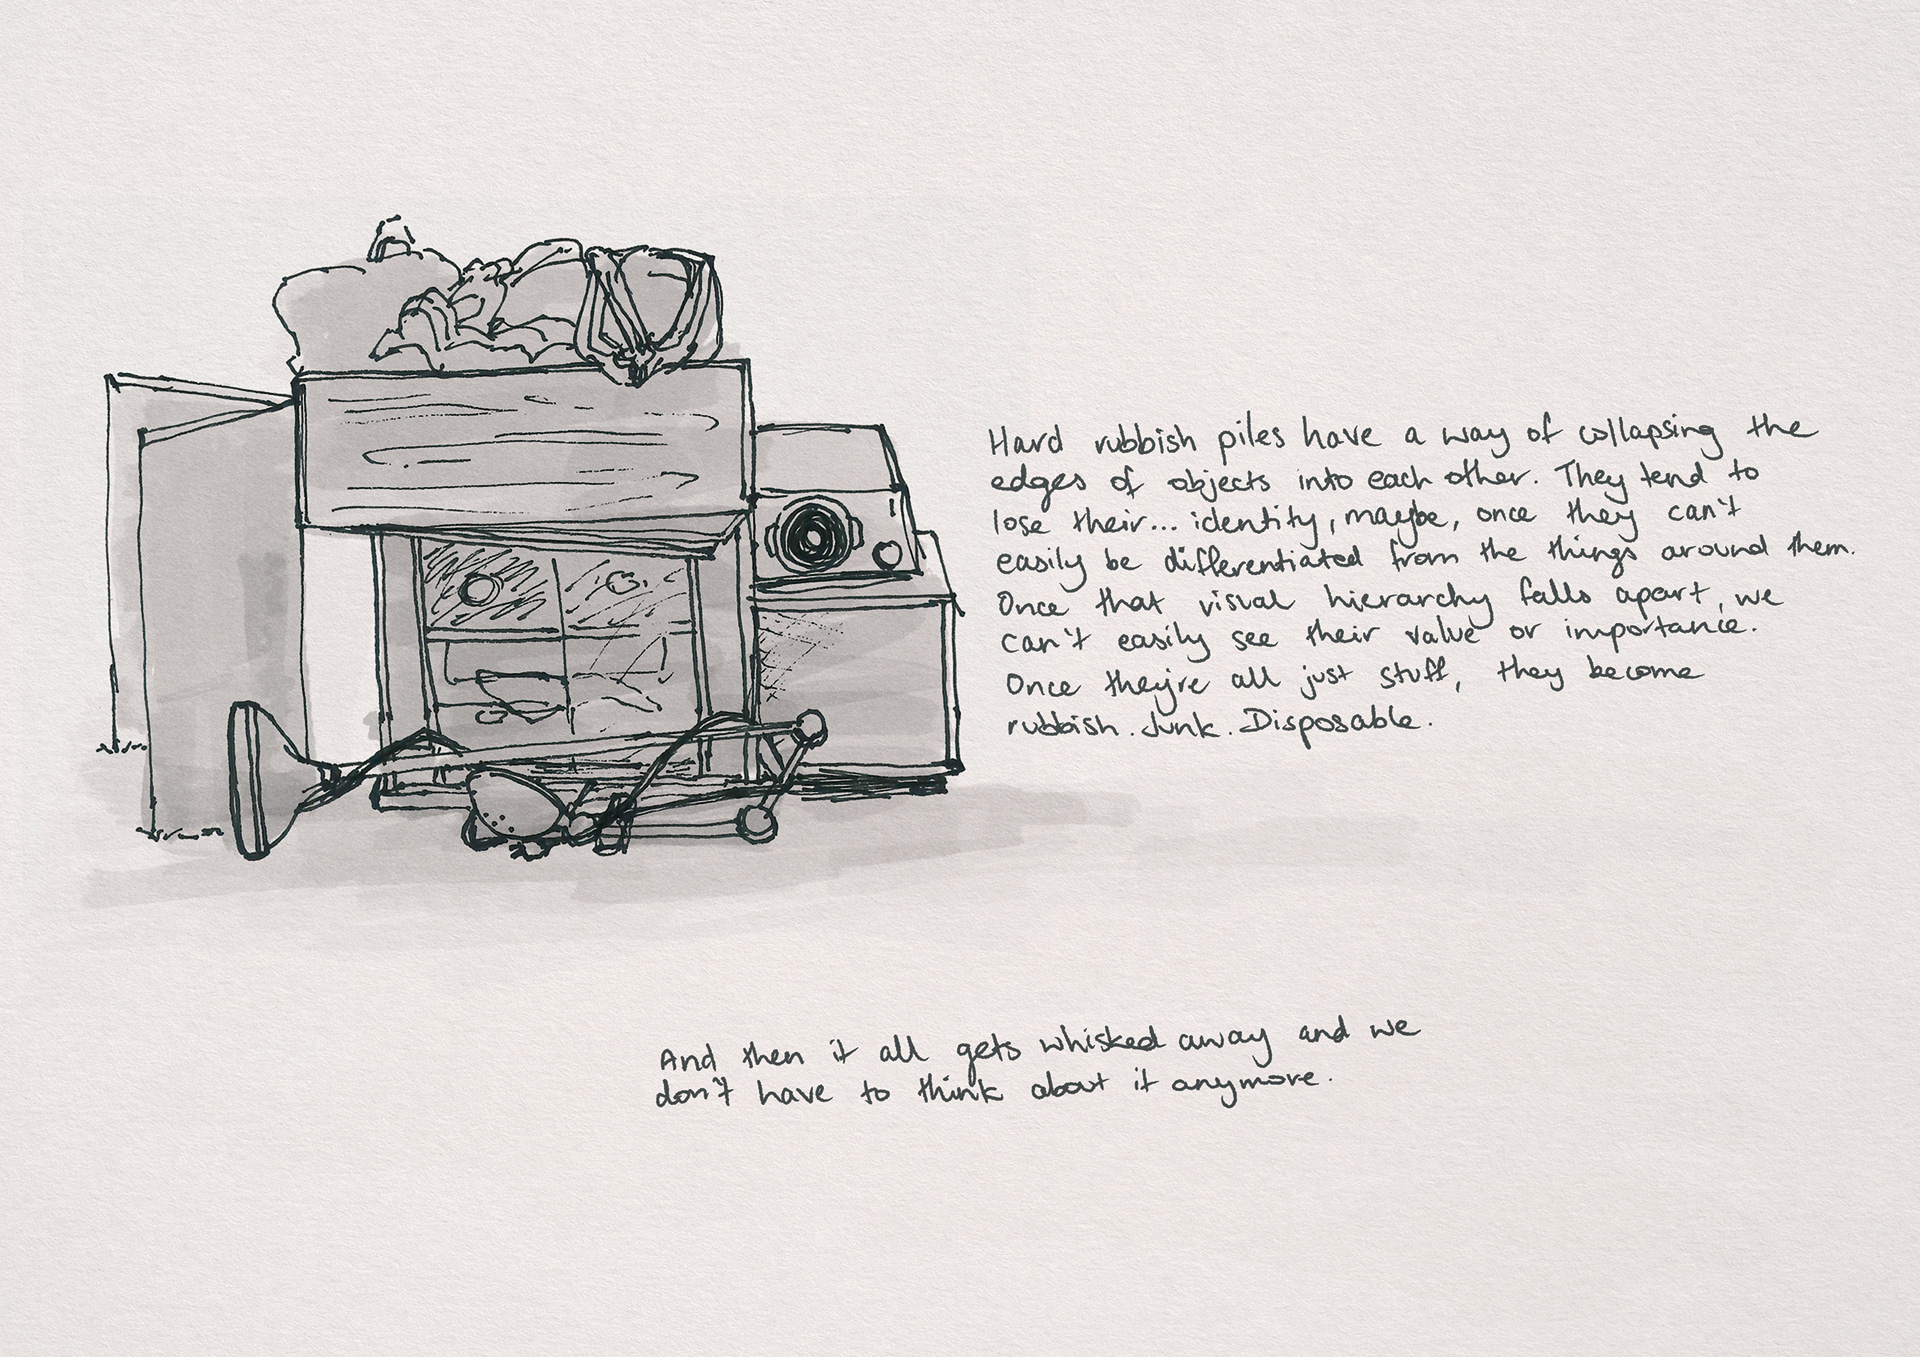 Hard rubbish piles have a way of collapsing the
edges of objects into each other. They tend to
lose their... identity, maybe, once they can't
easily be differentiated from the things around them.
Once that visual hierarchy falls apart, we
can't easily see their value or importance.
Once they're all just stuff, they become
rubbish. Junk. Disposable.
And then it all gets whisked away and we
don't have to think about it anymore.